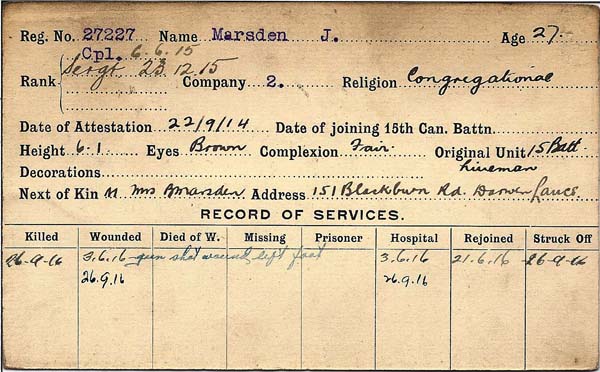 Reg. No. 27227 Name Marsden J. Age 27.
Cpl. 6.6.15
Sergt 23.12.15
Rank Company 2. Religion Congregational
Date of Attestation 22/9/14 Date of joining 15th Can. Battn.
Height 6.1 Eyes Brown Complexion Fair. Original Unit 15 Batt
Decorations lineman
Next of Kin M Mrs Marsden Address 151 Blackburn Rd. Darwen Lancs.
RECORD OF SERVICES.
Killed Wounded Died of W. Missing Prisoner Hospital Rejoined Struck Off
26-9-16 3.6.16 gun shot wound left foot 3.6.16 21.6.16 26-9-16
26.9.16 26.9.16